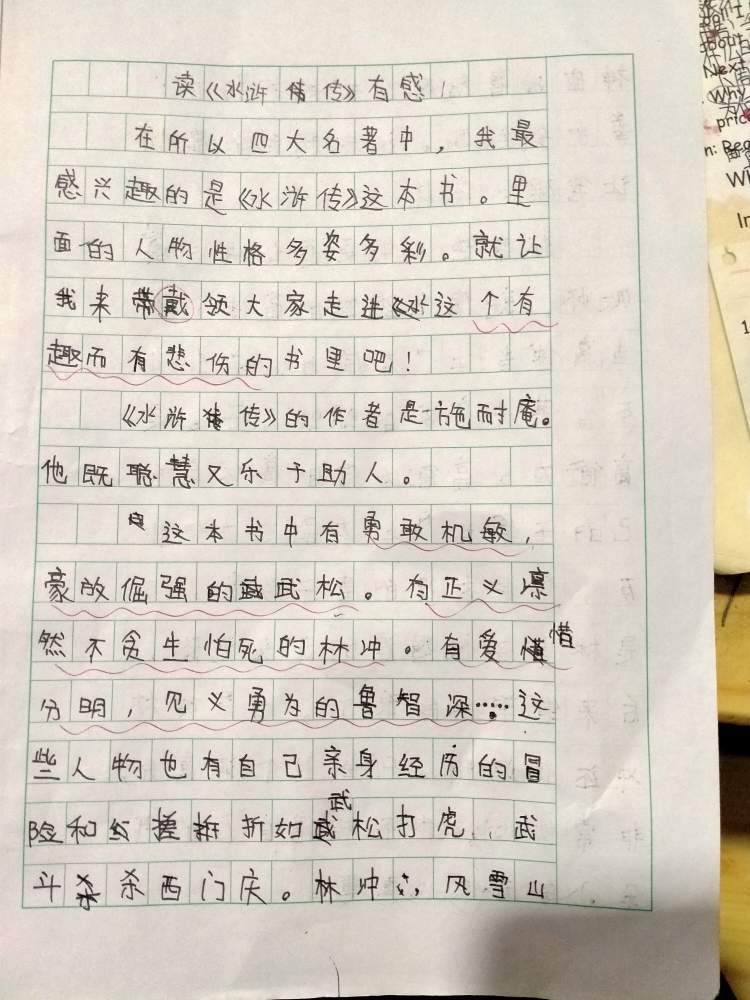 读《水浒传》有感
在所以四大名著中，我最
感兴趣的是《水浒传》这本书。里
面的人物性格多姿多彩。就让
我来带戴领大家走进这个有
趣而有悲伤的书里吧！
《水浒传》的作者是施耐庵。
他既聪慧又乐于助人。
这本书中有勇敢机敏，
豪放倔强的武松。有正义凛
然不贪生怕死的林冲。有爱惜
分明，见义勇为的鲁智深……这
些人物也有自己亲身经历的冒
险和挫折如武松打虎，武
斗杀西门庆。林冲，风雪山
Next
(Why
price
Wh
In